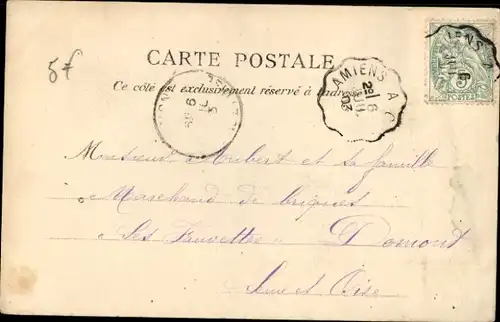 5f
CARTE POSTALE
Ce côté est exclusivement réservé à l'adresse
AMIENS A C
2º/6
JUIL
03
6
Monsieur Hubert et sa famille
Marchand de briques
Les Fauvettes Domont
Seine et Oise
POSTES